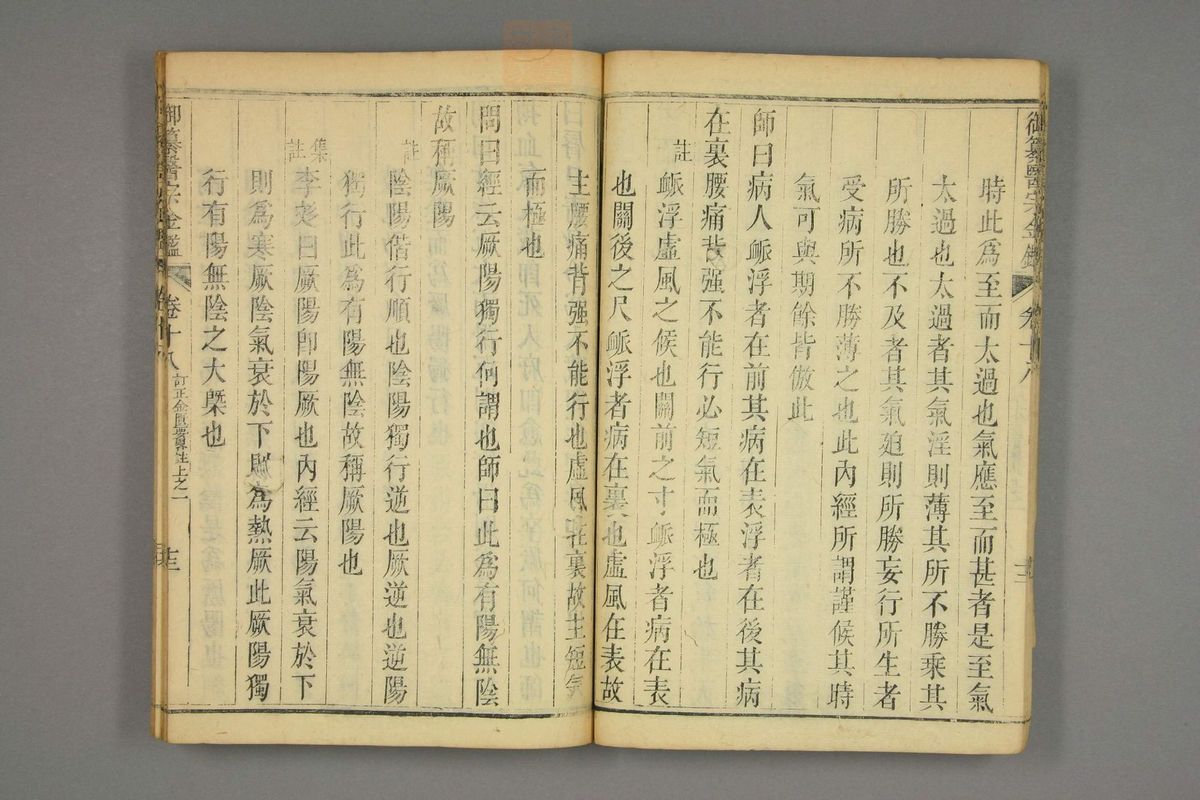 御纂醫宗金鑑
時此為至而太過也氣應至而甚者是至氣
太過也太過者其氣淫則薄其所不勝乘其
所勝也不及者其氣廹則所勝妄行所生者
受病所不勝薄之也此內經所謂謹候其時
氣可與期餘皆倣此
師曰病人䘑浮者在前其病在表浮者在後其病
在裏腰痛背强不能行必短氣而極也
註
䘑浮虛風之候也關前之寸䘑浮者病在表
也關後之尺䘑浮者病在裏也虛風在表故
主腰痛背强不能行也虛風在裏故主短氣
而極也
問曰經云厥陽獨行何謂也師曰此為有陽無陰
故稱厥陽
註
陰陽偕行順也陰陽獨行逆也厥逆也逆陽
獨行此為有陽無陰故稱厥陽也
集註
李彣曰厥陽卽陽厥也內經云陽氣衰於下
則為寒厥陰氣衰於下則為熱厥此厥陽獨
行有陽無陰之大槩也
御纂醫宗金鑑
卷十八
訂正金匱要畧註上之一